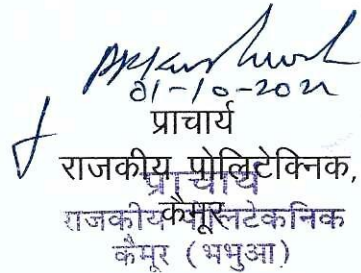 01-10-2021
प्राचार्य
राजकीय पोलिटेक्निक,
प्राचार्य
कैमूर
राजकीय पोलिटेकनिक
कैमूर (भभुआ)